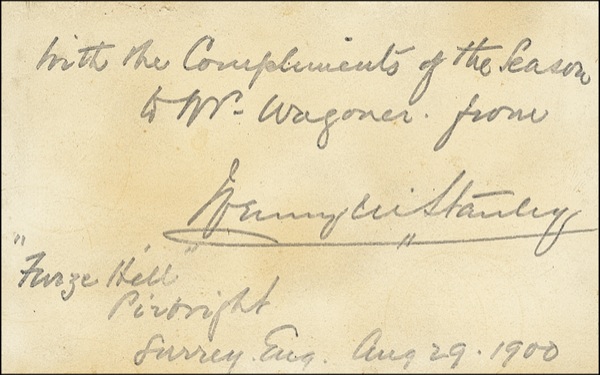 With the Compliments of the Season
to Mr. Wagoner. from
Henry M. Stanley
"Furze Hill"
Pirbright
Surrey. Eng. Aug 29. 1900